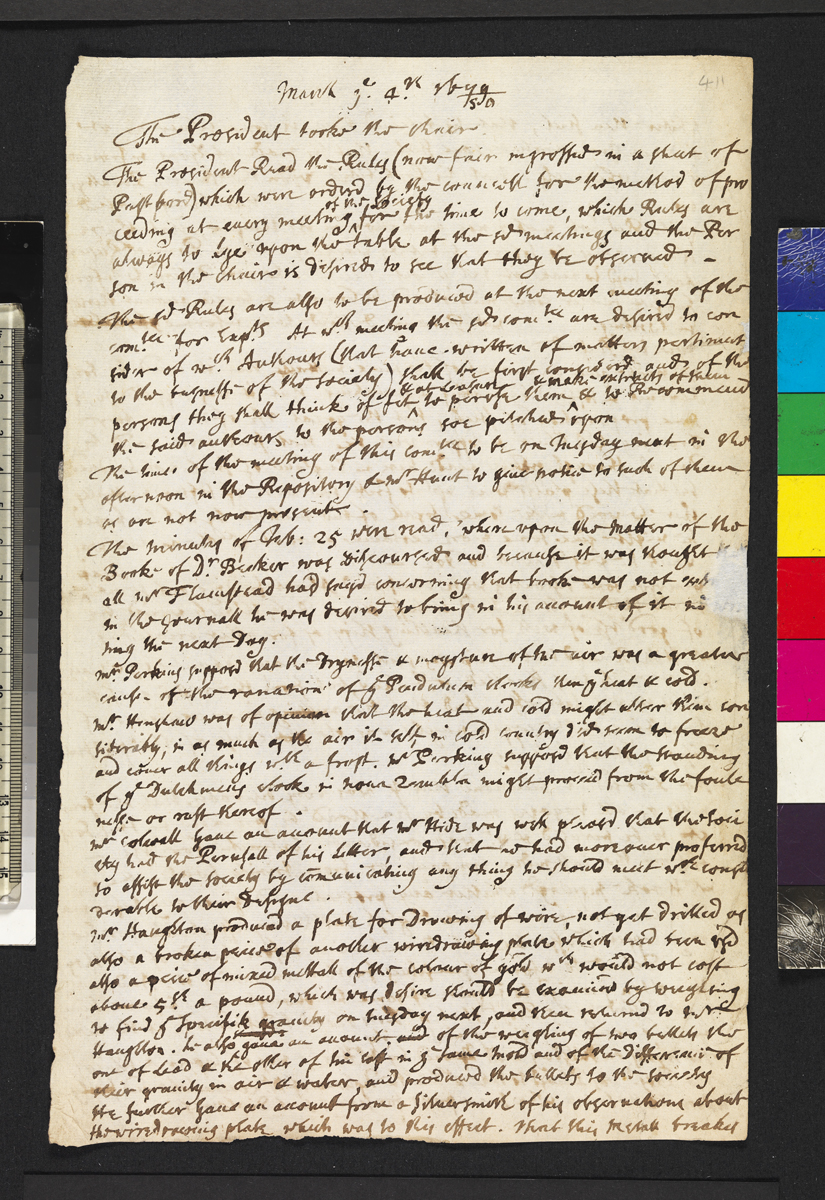 411
March ye. 4.th 1679/80
The President tooke the chair.
The President Read the Rules (now fair ingrossed in a sheat of
Pastbord) which were orderd by the councell for the method of pro
ceeding at every meeting of the Society for the time to come, which Rules are
always to lye upon the table at the sd meetings and the Per
son in the chair is desired to see that they be observed -
The sd Rules are also to be produced at the next meeting of the
comtee for Exp.ts At wch meeting the sd com.tee are desired to con
sider of wch Authours (that have written of matters pertinent
to the business of the society) shall be first considerd and of the
persons they shall think fit to peruse them & make extracts of them & to Recommend
the said authours to the persons soe pitched upon
The time of the meeting of this comtee to be on Tuesday next in the
afternoon in the Repository & mr Hunt to give notice to such of them
as are not now present.
The minutes of Feb: 25 were read, where upon the matter of the
Booke of Dr. Becker was discoursed and because it was thought
all mr Flamstead had sayd concerning that book was not
in the Journall he was desired to bring in his account of it in
ting the next Day.
mr. Perkins supposd that the Drynesse & moysture of the air was a greater
cause of the variation of ye Pendulum clocks then ye heat & cold.
mr Henshaw was of opinion that the heat and cold might alter them con
siderably, in as much as the air it self in cold country did seem to freeze
and cover all things wth a frost. mr Perking supposd that the standing
of ye Dutchmens clock in nova Zembla might proceed from the foule
nesse or rust thereof.
mr colwall gave an account that mr Hide was well pleasd that the Soci
ety had the Perusall of his Letter, and that he had moreover proferred
to assist the society by comunicating any thing he should meet wth consi
derable to their designe.
mr. Haughton produced a plate for Drawing of wire, not yet drilled as
also a broken peice of another wiredrawing plate which had been usd
also a peice of mixed mettall of the colour of gold wch would not cost
about 5sh a pound, which was desird should be examined by weighing
to find ye specifik gravity on tuesday next, and then returnd to mr.
Haughton. he also gave an account of the weighing of two bullets the
one of Lead & the other of tin cast in ye same mold and of the Differance of
their gravity in air & water, and produced the bullets to the society
He further gave an account from a silversmith of his observations about
the wiredrawing plate which was to this effect. that this mettall breakes